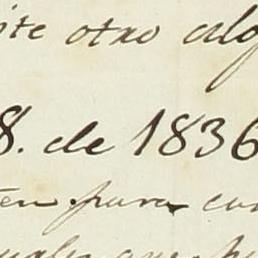 ite otro alg
8. de 1836
ten para cu